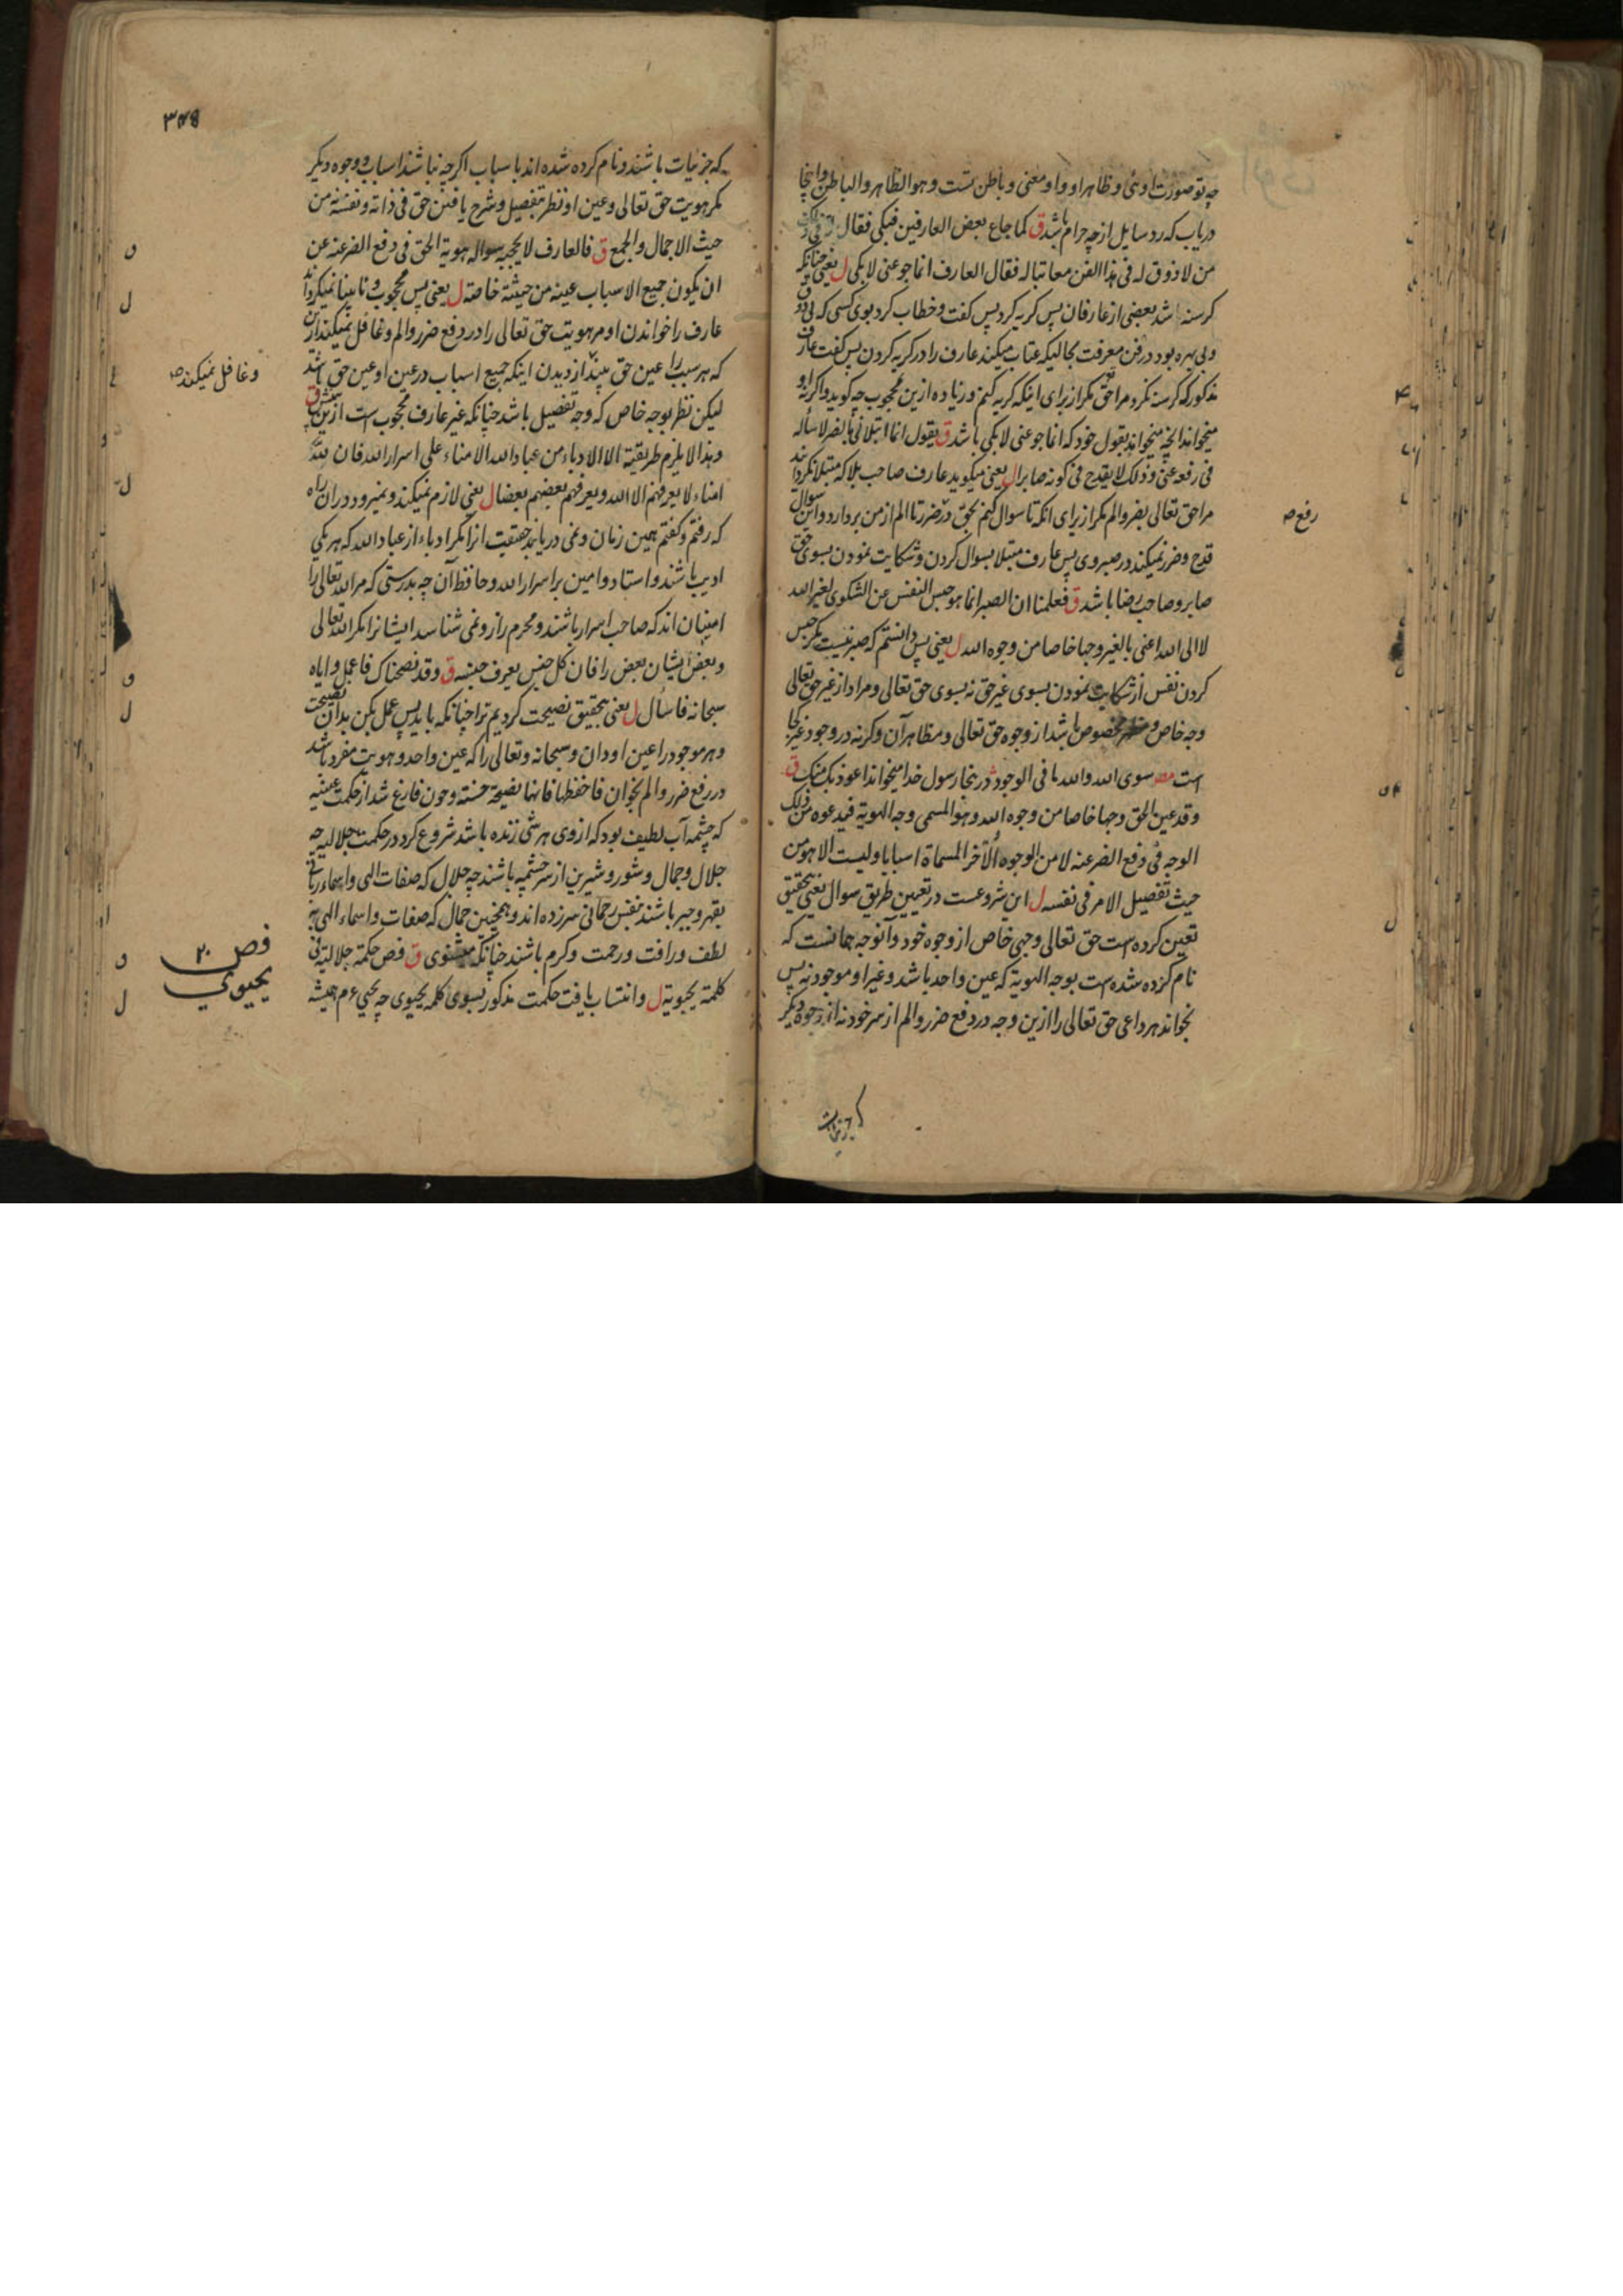 چه تو صورت اوئی و ظاهر او و او معنی و باطن تست و هو الظاهر والباطن و اینجا
دریاب که رد سایل از چه حرام باشد ق کما جاع بعض العارفین فبکی فقال له فی ذلک
من لا ذوق له فی هذا الفن معاتبا له فقال العارف انما جوعنی لابکی ل یعنی چنانکه
کرسنه شد بعضی از عارفان پس کریه کرد پس کفت و خطاب کرد بوی کسی که بی ذوق
و بی بهره بود در فن معرفت بحالیکه عتاب میکند عارف را در کریه کردن پس کفت عارف
مذکور که کرسنه نکرد مرا حق مکر از برای اینکه کریه کنم و زیاده ازین محجوب چه کوید واکر نه او
میخواند آنچه میخواند بقول خود که انما جوعنی لابکی باشد ق یقول انما ابتلانی بالضر لاسأله
فی رفعه عنی وذلک لا یقدح فی کونه صابرا ل یعنی میکوید عارف صاحب بلا که مبتلا نکرداند
مرا حق تعالی بضر و الم مکر از برای انکه تا سوال کنم بحق در ضرر تا الم از من بردارد و این سوال
رفع صح
قدح و ضرر نمیکند در صبر وی پس عارف مبتلا بسوال کردن و شکایت نمودن بسوی حق
صابر و صاحب رضا باشد ق فعلمنا ان الصبر انما هو حبس النفس عن الشکوی لغیر الله
لا الی الله اعنی بالغیر وجها خاصا من وجوه الله ل یعنی پس دانستم که صبر نیست مکر حبس
کردن نفس از شکایت نمودن بسوی غیر حق نه بسوی حق تعالی و مراد از غیر حق تعالی
وجه خاص و مخصوص باشد از وجوه حق تعالی و مظاهر آن وکرنه در وجود غیر کجا
است سوی الله والله ما فی الوجود در ینجا رسول خدا میخواند اعوذ بک منک ق
وقد عین الحق وجها خاصا من وجوه الله وهو المسمی وجه الهویة فیدعوه من ذلک
الوجه فی رفع الضر عنه لا من الوجوه الأخر المسماة اسبابا ولیست الا هو من
حیث تفصیل الامر فی نفسه ل این شروعست در تعیین طریق سوال یعنی بتحقیق
تعین کرده است حق تعالی وجهی خاص از وجوه خود و آنوجه همانست که
نام کرده شده است بوجه الهویة که عین واحد باشد و غیر او موجود نه پس
بخواند هر داعی حق تعالی را ازین وجه در دفع ضرر و الم از سر خود نه از وجوه دیکر
که جزئیات
۳۴۵
که جزئیات باشند و نام کرده شده اند باسباب اکرچه نباشند اسباب و وجوه دیکر
مکر هویت حق تعالی و عین او نظر بتفصیل و شرح یافتن حق فی ذاته و نفسه نه من
حیث الاجمال والجمع ق فالعارف لا یحجبه سواله هویة الحق فی رفع الضر عنه عن
ان یکون جمیع الاسباب عینه من حیثیة خاصة ل یعنی پس محجوب و نابینا نمیکرداند
عارف را خواندن او مر هویت حق تعالی را در دفع ضرر و الم و غافل نمیکند از آن
و غافل نمیکند صح
که هر سبب را عین حق بیند از دیدن اینکه جمیع اسباب در عین او عین حق باشد
لیکن نظر بوجه خاص که وجه تفصیل باشد چنانکه غیر عارف محجوب است ازین ق
وهذا لا یلزم طریقته الا الادباء من عباد الله الامناء علی اسرار الله فان لله
امناء لا یعرفهم الا الله ویعرف بعضهم بعضا ل یعنی لازم نمیکند و نمیرود در ان راه
که رفتم و کفتم همین زمان و نمی دریابد حقیقت انرا مکر ادباء از عباد الله که هر یکی
ادیب باشند و استاد و امین بر اسرار الله و حافظ آن چه بدرستی که مر الله تعالی را
امینان اند که صاحب اسرار باشند و محرم راز و نمی شناسد ایشانرا مکر الله تعالی
و بعض ایشان بعض را فان کل جنس یعرف جنسه ق وقد نصحناک فاعمل وایاه
سبحانه فاسأل ل یعنی بتحقیق نصیحت کردیم ترا چنانکه باید پس عمل بکن بدان نصیحت
و هر موجود را عین او دان و سبحانه و تعالی را که عین واحد و هویت مفرد باشد
در رفع ضرر و الم بخوان فاحفظها فانها نصیحة حسنة و چون فارغ شد از حکمت غیبیه
که چشمه آب لطیف بود که از وی هر شی زنده باشد شروع کرد در حکمت جلالیه چه
جلال و جمال و شور و شیرین از سر چشمه باشند چه جلال که صفات الهی و اسماء ربانی
بقهر و جبر باشند بنفس رحمانی سر زده اند و همچنین جمال که صفات و اسماء الهی به
لطف و رافت و رحمت و کرم باشند چنانکه مثنوی ق فص حکمة جلالیة فی
فص ۲۰
یحیوی
کلمة یحیویة ل و انتساب یافت حکمت مذکور بسوی کلمه یحیوی چه یحیی ع م همیشه